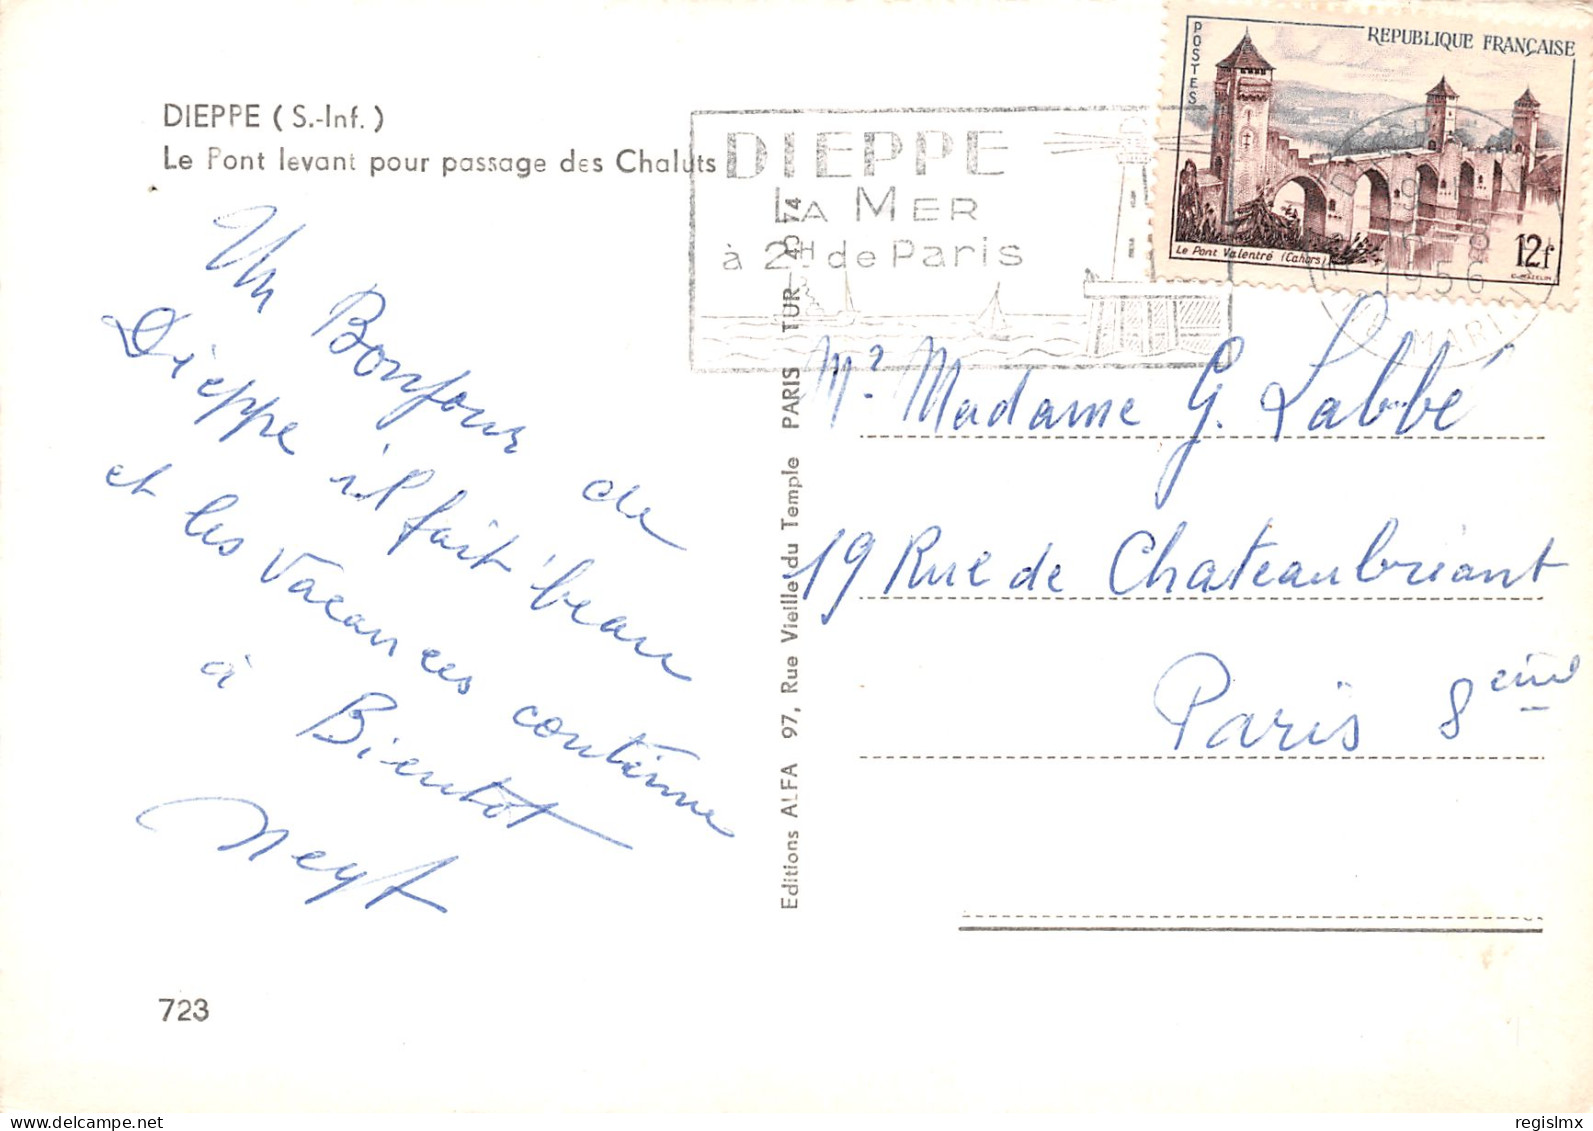 DIEPPE ( S.-Inf. )
Le Pont levant pour passage des Chaluts
Un Bonjour de
Dieppe il fait beau
et les vacances continue
à Bientot
Neyt
723
Editions ALFA 97, Rue Vieille du Temple PARIS TUR 45-74
DIEPPE
LA MER
à 2H de Paris
POSTES
REPUBLIQUE FRANÇAISE
Le Pont Valentré (Cahors)
12f
1956
MARIT
Mr Madame G. Labbé
19 Rue de Chateaubriant
Paris 8eme
regislmx